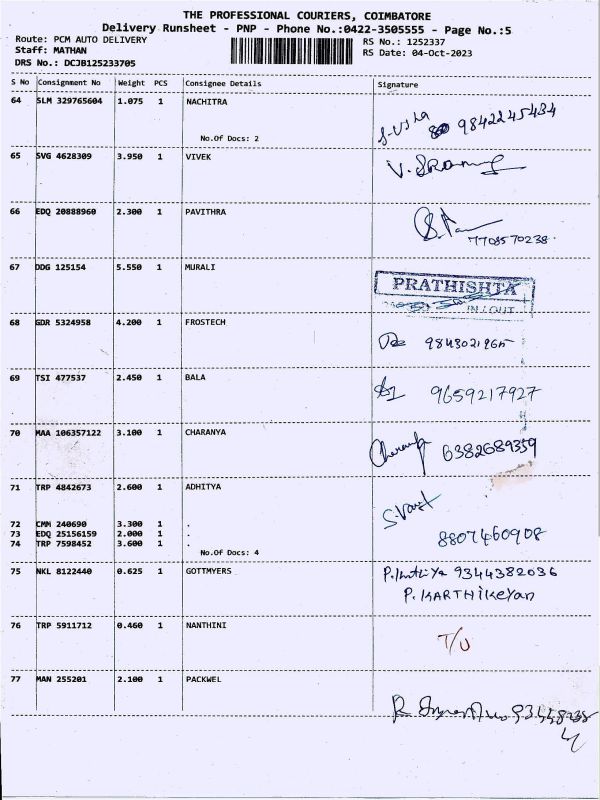 THE PROFESSIONAL COURIERS, COIMBATORE
Delivery Runsheet - PNP - Phone No.:0422-3505555 - Page No.:5
Route: PCM AUTO DELIVERY
RS No.: 1252337
Staff: MATHAN
RS Date: 04-Oct-2023
DRS No.: DCJB125233705
S No Consignment No Weight PCS Consignee Details Signature
64 SLM 329765604 1.075 1 NACHITRA
No.Of Docs: 2
S-Usha 9842245434
65 SVG 4628309 3.950 1 VIVEK
66 EDQ 20888960 2.300 1 PAVITHRA
7708570238
67 DDG 125154 5.550 1 MURALI
PRATHISHTA
IN / OUT
68 GDR 5324958 4.200 1 FROSTECH
9843021965
69 TSI 477537 2.450 1 BALA
9659217927
70 MAA 106357122 3.100 1 CHARANYA
6382689359
71 TRP 4842673 2.600 1 ADHITYA
72 CMM 240690 3.300 1 .
73 EDQ 25156159 2.000 1 .
74 TRP 7598452 3.600 1 .
No.Of Docs: 4
8807460908
75 NKL 8122440 0.625 1 GOTTMYERS
9344382036
P. KARTHIKEYAN
76 TRP 5911712 0.460 1 NANTHINI
T/U
77 MAN 255201 2.100 1 PACKWEL